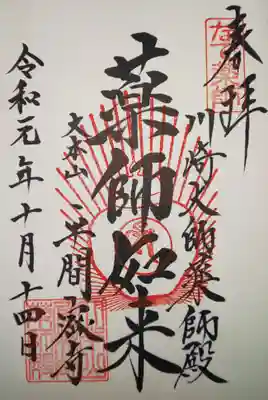 奉拝
川崎大師薬師殿
薬師如来
大本山
平間寺
令和元年十月十四日